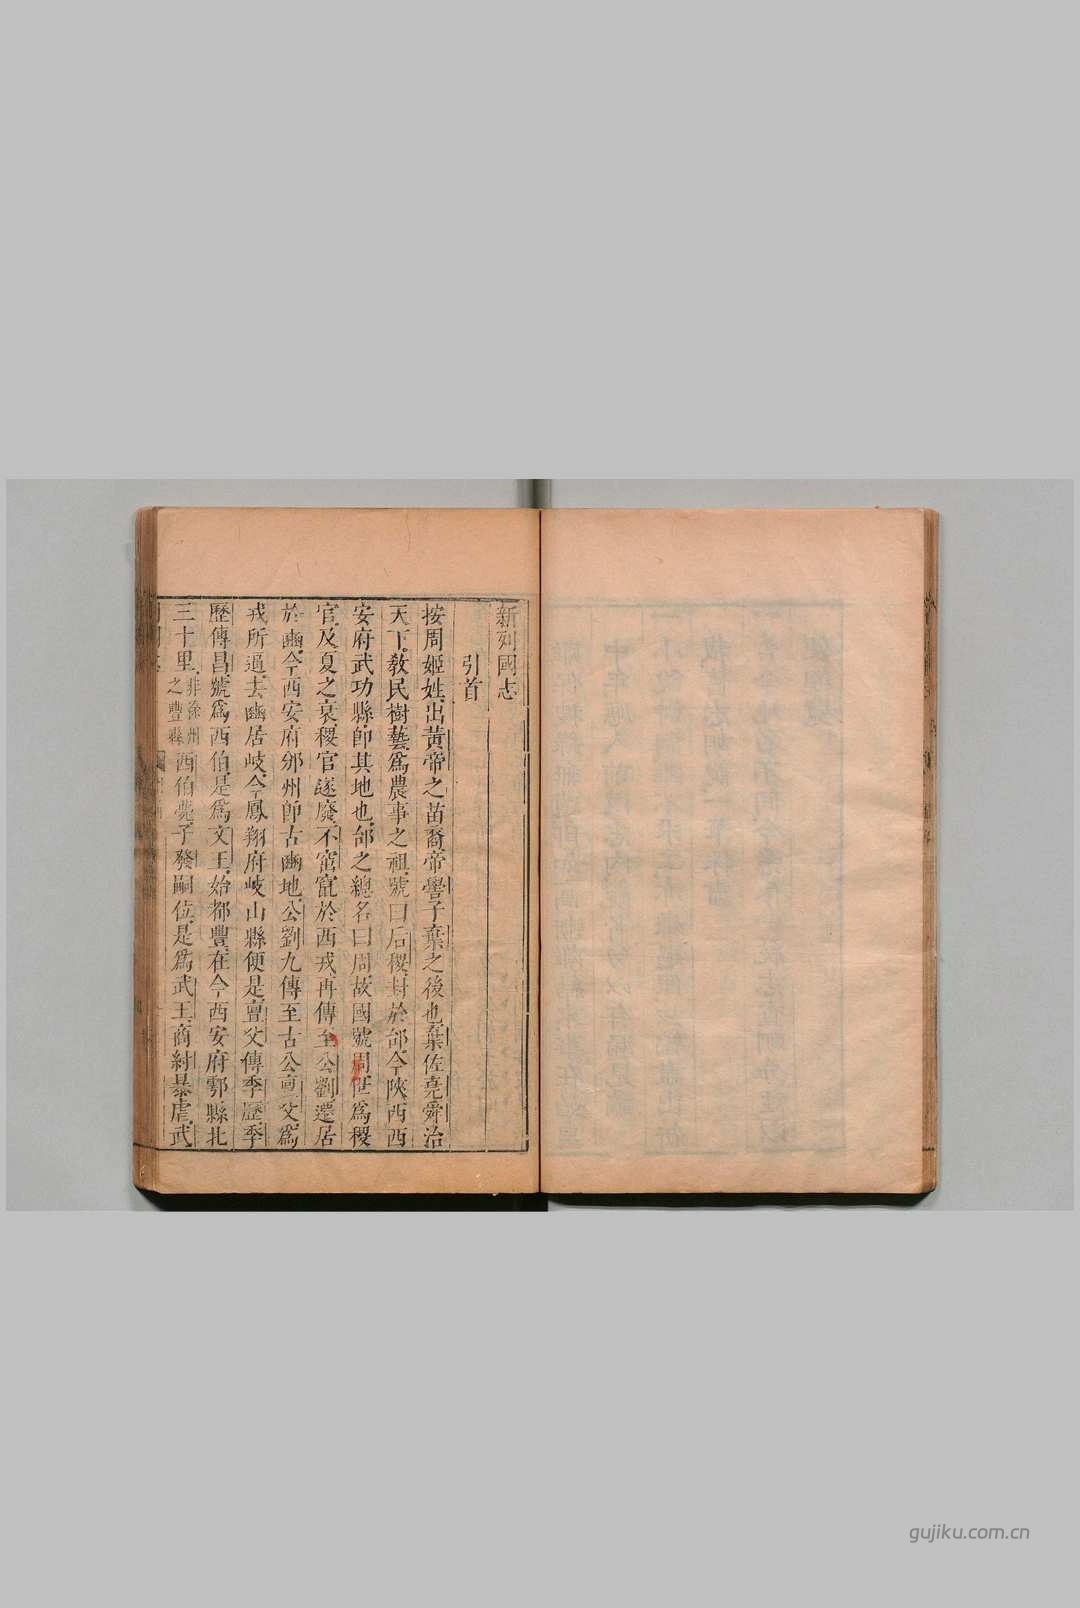 新列國志
引首
按周姬姓出黃帝之苗裔帝嚳子棄之後也棄佐堯舜治
天下教民樹藝爲農事之祖號曰后稷封於邰今陝西西
安府武功縣即其地也邰之總名曰周故國號周世爲稷
官及夏之衰稷官遂廢不窋竄於西戎再傳至公劉遷居
於豳今西安府邠州即古豳地公劉九傳至古公亶父爲
戎所逼去豳居岐今鳳翔府岐山縣便是亶父傳季歷季
歷傳昌號爲西伯是爲文王始都豐在今西安府鄠縣北
三十里非徐州之豐縣西伯薨子發嗣位是爲武王商紂暴虐武
gujiku.com.cn